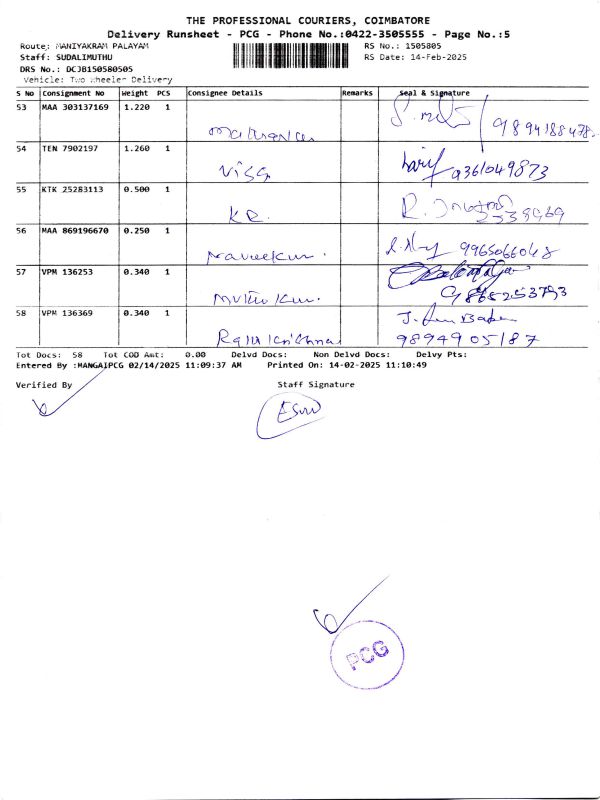 THE PROFESSIONAL COURIERS, COIMBATORE
Delivery Runsheet - PCG - Phone No.:0422-3505555 - Page No.:5
Route: MANIYAKRAM PALAYAM RS No.: 1505805
Staff: SUDALIMUTHU RS Date: 14-Feb-2025
DRS No.: DCJB150580505
Vehicle: Two Wheeler Delivery
S No Consignment No Weight PCS Consignee Details Remarks Seal & Signature
53 MAA 303137169 1.220 1
54 TEN 7902197 1.260 1 9361049873
55 KTK 25283113 0.500 1 KR.
56 MAA 869196670 0.250 1 Naveekum. 9965066048
57 VPM 136253 0.340 1 Muthukum. 9865253793
58 VPM 136369 0.340 1 9894905187
Tot Docs: 58 Tot COD Amt: 0.00 Delvd Docs: Non Delvd Docs: Delvy Pts:
Entered By :MANGAIPCG 02/14/2025 11:09:37 AM Printed On: 14-02-2025 11:10:49
Verified By Staff Signature
PCG